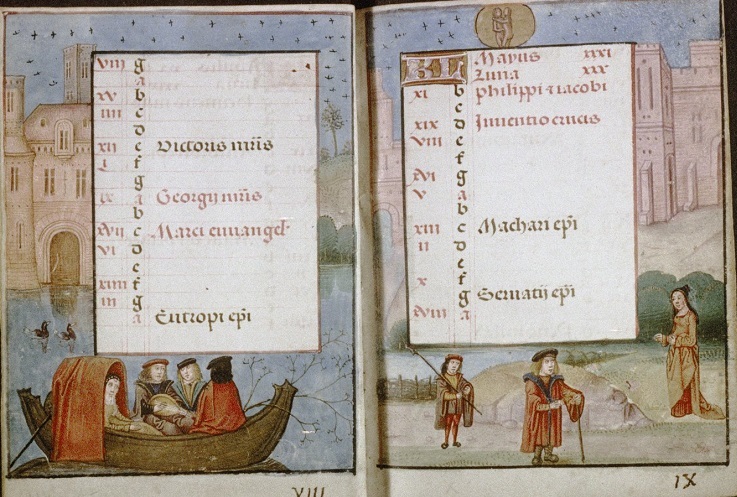 viii g
a
xv b
iiii c
d
xii e Victoris mr̄is
i f
g
ix a Georgij mr̄is
b
xvii c Marci euuangel̄
vi d
e
xiiii f
iii g
a Eutropi ep̄i
VIII
KL Mayus xxxi
Luna xxx
xi b philippi ⁊ iacobi
c
xix d Inuentio crucis
viii e
f
xvi g
v a
b
xiii c Macharı ep̄i
ii d
e
x f
g Seruatij ep̄i
xviii a
IX